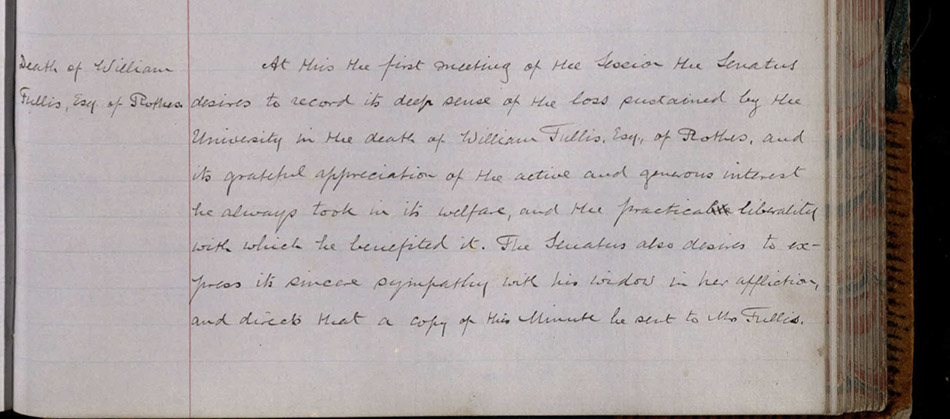 Death of William
Tullis, Esq. of Rothes
At this the first meeting of the Session the Senatus
desires to record its deep sense of the loss sustained by the
University in the death of William Tullis, Esq., of Rothes, and
its grateful appreciation of the active and generous interest
he always took in its welfare, and the practical liberality
with which he benefited it. The Senatus also desires to ex-
press its sincere sympathy with his widow in her affliction,
and directs that a copy of this Minute be sent to Mrs Tullis.